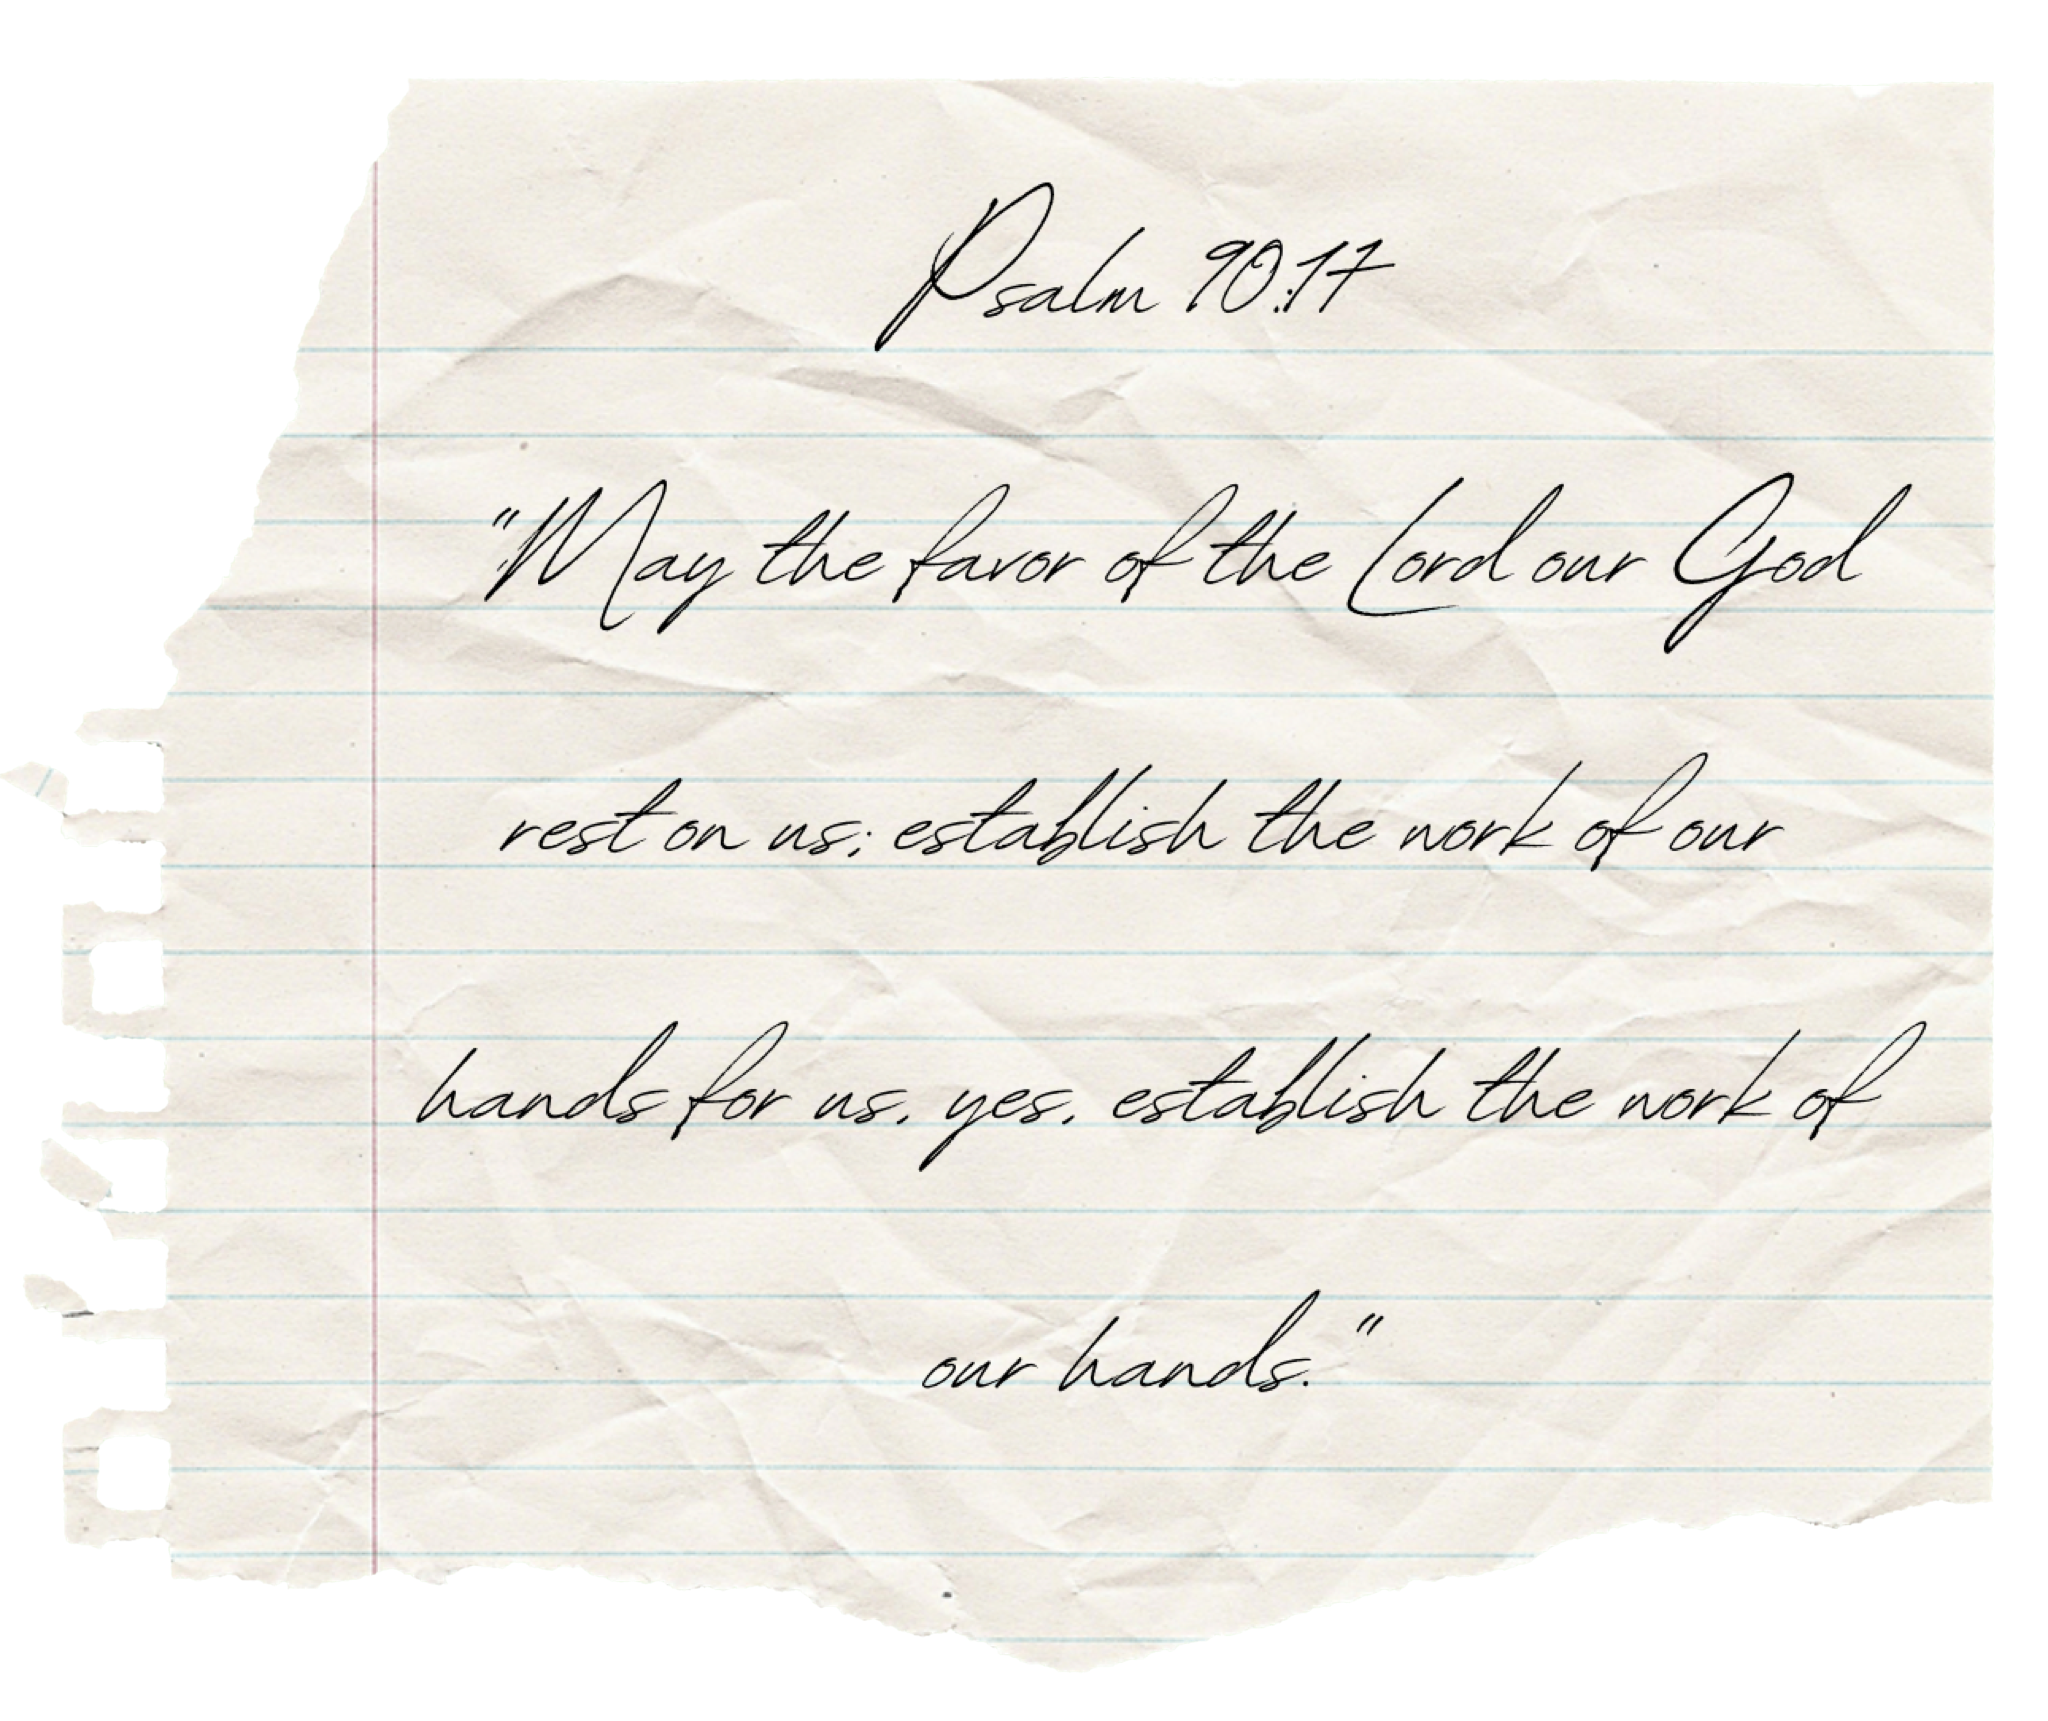 Psalm 90:17
"May the favor of the Lord our God
rest on us; establish the work of our
hands for us, yes, establish the work of
our hands."